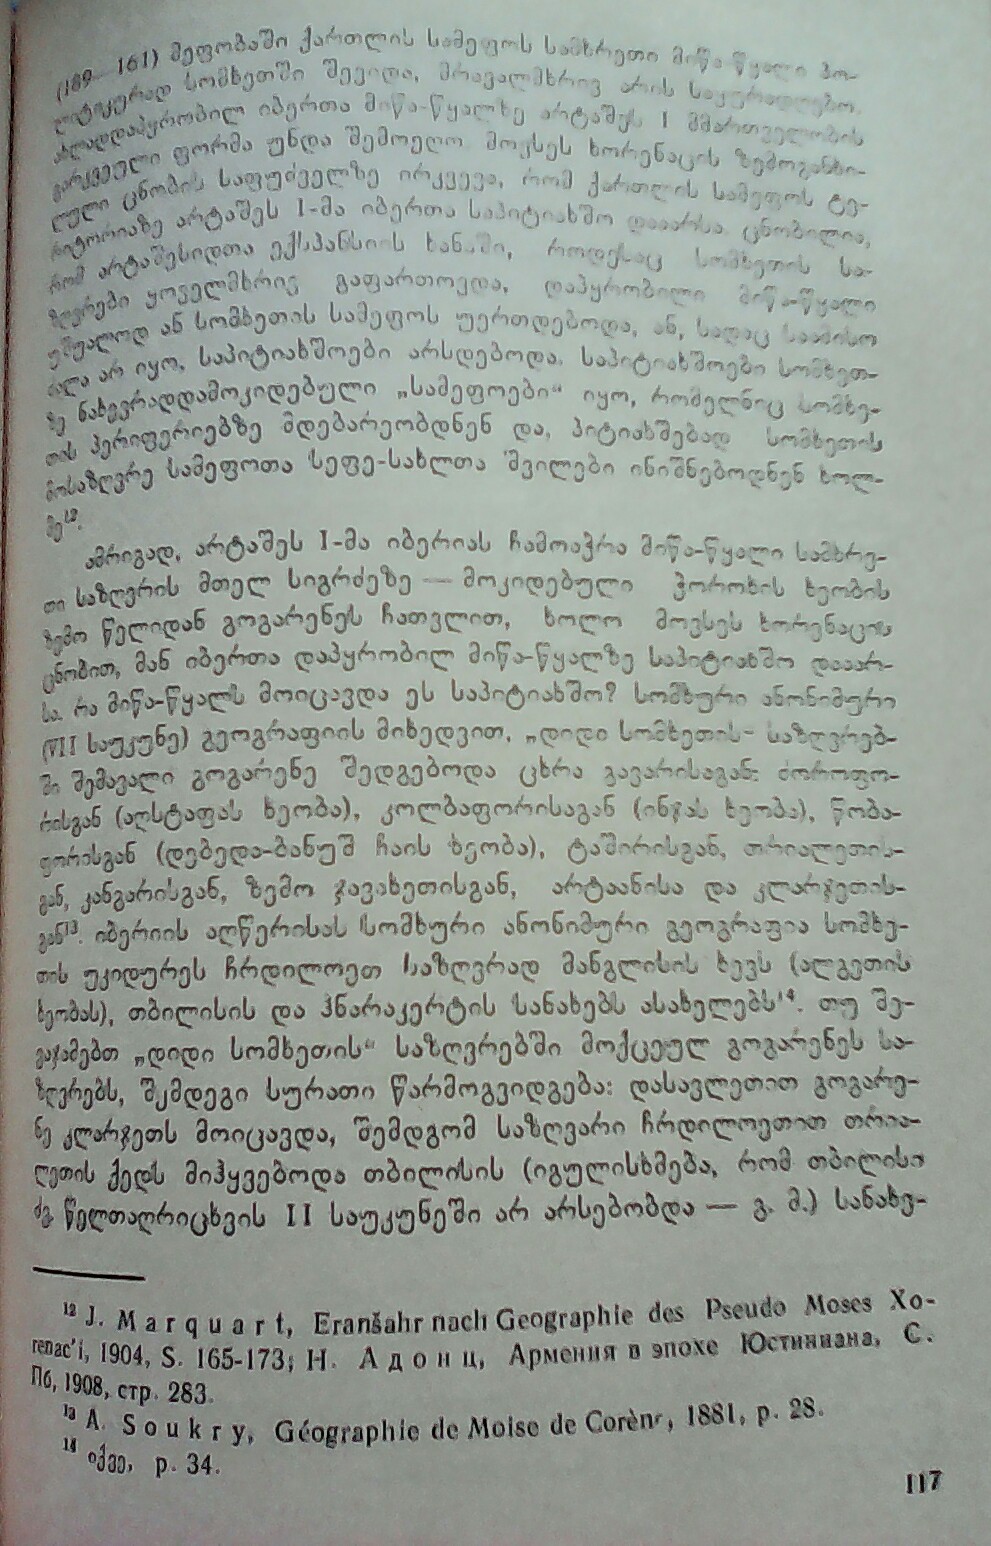 (189—161) მეფობაში ქართლის სამეფოს სამხრეთი მიწა-წყალი პო-
ლიტიკურად სომხეთში შევიდა, მრავალმხრივ არის საყურადღებო.
ახლადდაპყრობილ იბერთა მიწა-წყალზე არტაშეს I მმართველობის
გარკვეული ფორმა უნდა შემოეღო. მოვსეს ხორენაცის ზემოგანხი-
ლული ცნობის საფუძველზე ირკვევა, რომ ქართლის სამეფოს ტე-
რიტორიაზე არტაშეს I-მა იბერთა საპიტიახშო დააარსა. ცნობილია,
რომ არტაშესიდთა ექსპანსიის ხანაში, როდესაც სომხეთის სა-
ზღვრები ყოველმხრივ გაფართოვდა, დაპყრობილი მიწა-წყალი
უშუალოდ ან სომხეთის სამეფოს უერთდებოდა, ან, სადაც საამისო
ძალა არ იყო, საპიტიახშოები არსდებოდა. საპიტიახშოები სომხეთ-
ზე ნახევრადდამოკიდებული „სამეფოები“ იყო, რომელნიც სომხე-
თის პერიფერიებზე მდებარეობდნენ და, პიტიახშებად სომხეთის
მოსაზღვრე სამეფოთა სეფე-სახლთა შვილები ინიშნებოდნენ ხოლ-
მე¹².
ამრიგად, არტაშეს I-მა იბერიას ჩამოაჭრა მიწა-წყალი სამხრე-
თი საზღვრის მთელ სიგრძეზე — მოკიდებული ჭოროხის ხეობის
ზემო წელიდან გოგარენეს ჩათვლით, ხოლო მოვსეს ხორენაცის
ცნობით, მან იბერთა დაპყრობილ მიწა-წყალზე საპიტიახშო დააარ-
სა. რა მიწა-წყალს მოიცავდა ეს საპიტიახშო? სომხური ანონიმური
(VII საუკუნე) გეოგრაფიის მიხედვით, „დიდი სომხეთის“ საზღვრებ-
ში შემავალი გოგარენე შედგებოდა ცხრა გავარისაგან: ძოროფო-
რისგან (აღსტაფას ხეობა), კოლბაფორისაგან (ინჯას ხეობა), წობა-
ფორისგან (დებედა-ბანუშ ჩაის ხეობა), ტაშირისგან, თრიალეთის-
გან, კანგარისგან, ზემო ჯავახეთისგან, არტაანისა და კლარჯეთის-
გან¹³. იბერიის აღწერისას სომხური ანონიმური გეოგრაფია სომხე-
თის უკიდურეს ჩრდილოეთ საზღვრად მანგლისის ხევს (ალგეთის
ხეობას), თბილისის და ჰნარაკერტის სანახებს ასახელებს¹⁴. თუ შე-
ვაჯამებთ „დიდი სომხეთის“ საზღვრებში მოქცეულ გოგარენეს სა-
ზღვრებს, შემდეგი სურათი წარმოგვიდგება: დასავლეთით გოგარე-
ნე კლარჯეთს მოიცავდა, შემდგომ საზღვარი ჩრდილოეთით თრია-
ლეთის ქედს მიჰყვებოდა თბილისის (იგულისხმება, რომ თბილისი
ძვ. წელთაღრიცხვის II საუკუნეში არ არსებობდა — გ. მ.) სანახე-
¹² J. Marquart, Eranšahr nach Geographie des Pseudo Moses Xo-
renac'i, 1904, S. 165-173; Н. Адонц, Армения в эпохе Юстиниана, С.
Пб, 1908, стр. 283.
¹³ A. Soukry, Géographie de Moise de Corène, 1881, p. 28.
¹⁴ იქვე, p. 34.
117